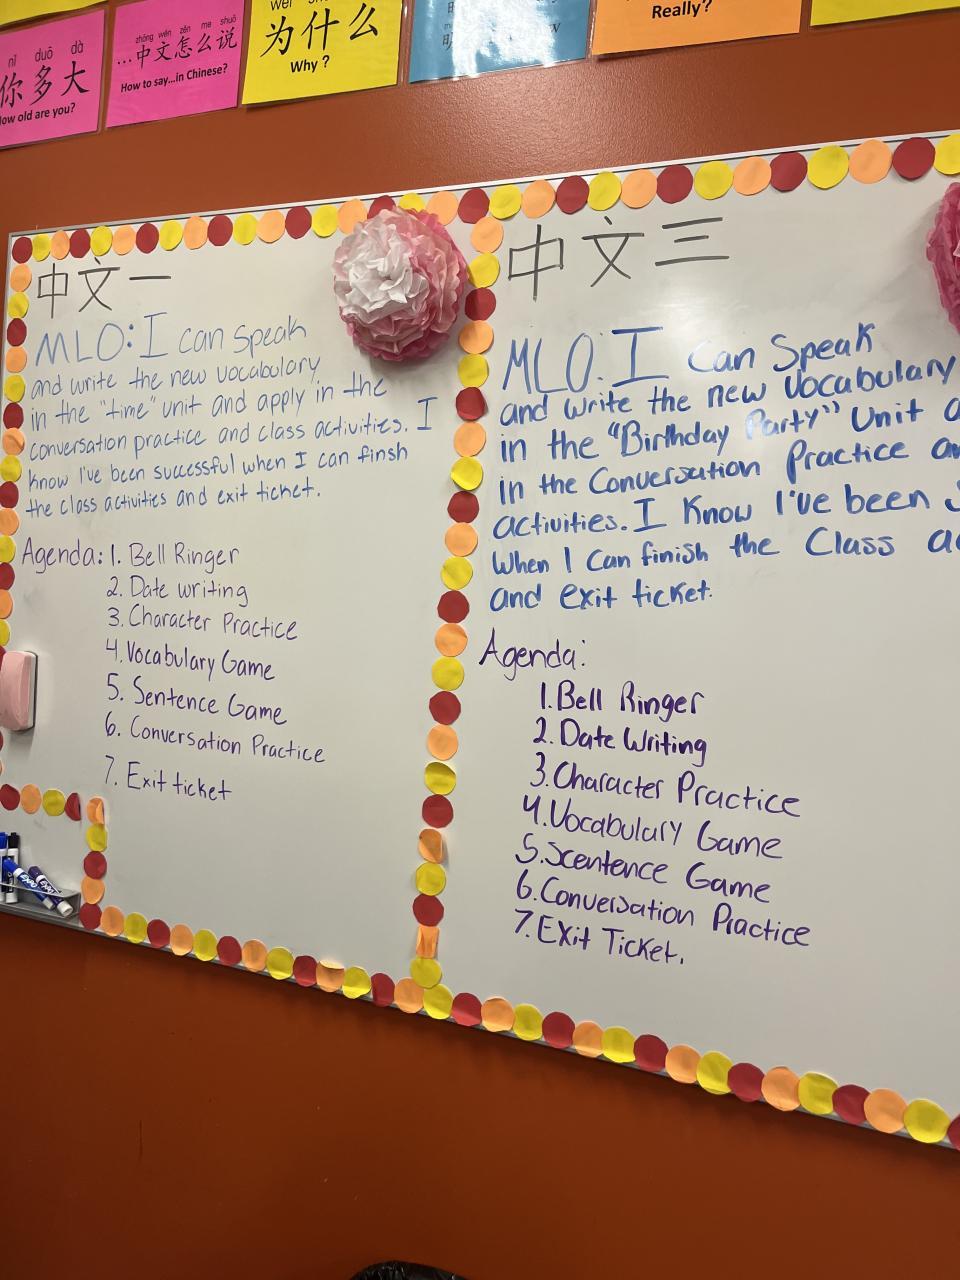 nǐ duō dà
你多大
How old are you?
zhōng wén zěn me shuō
...中文怎么说
How to say...in Chinese?
wèi shén me
为什么
Why ?
Really?
中文一
MLO: I can speak
and write the new vocabulary
in the "time" unit and apply in the
conversation practice and class activities. I
know I've been successful when I can finsh
the class activities and exit ticket.
Agenda: 1. Bell Ringer
2. Date writing
3. Character Practice
4. Vocabulary Game
5. Sentence Game
6. Conversation Practice
7. Exit ticket
中文三
MLO: I Can Speak
and write the new vocabulary
in the "Birthday Party" Unit
in the Conversation Practice
activities. I Know I've been
When I Can finish the Class
and exit ticket.
Agenda:
1. Bell Ringer
2. Date Writing
3. Character Practice
4. Vocabulary Game
5. Scentence Game
6. Conversation Practice
7. Exit Ticket.
EXPO
EXPO